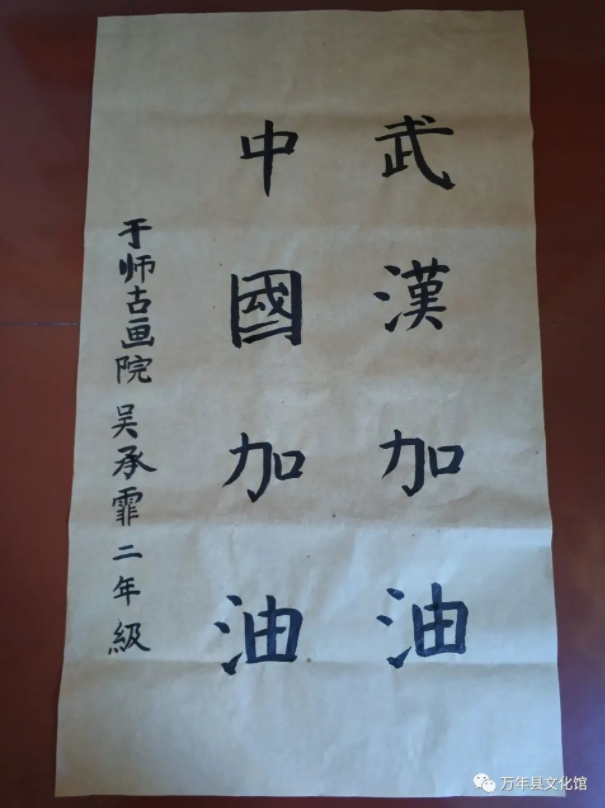 武漢加油
中國加油
于师古画院 吴承霏 二年級
万年县文化馆